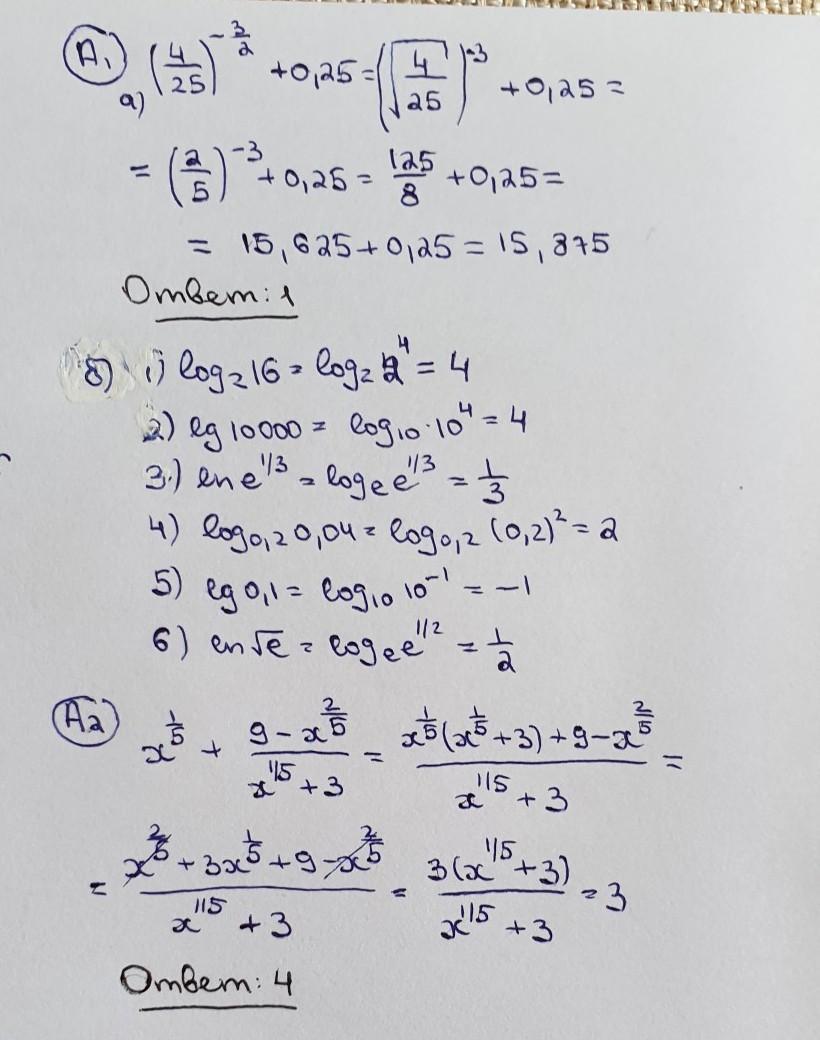 A1 a) (4/25)^(-3/2) + 0,25 = (√(4/25))^(-3) + 0,25 =
= (2/5)^(-3) + 0,25 = 125/8 + 0,25 =
= 15,625 + 0,25 = 15,875
Ответ: 1
б) 1) log₂16 = log₂2⁴ = 4
2) lg 10000 = log₁₀·10⁴ = 4
3.) ln e^(1/3) = logₑe^(1/3) = 1/3
4) log₀,₂0,04 = log₀,₂(0,2)² = 2
5) lg 0,1 = log₁₀10⁻¹ = -1
6) ln√e = logₑe^(1/2) = 1/2
A2 x^(1/5) + (9 - x^(2/5))/(x^(1/5) + 3) = (x^(1/5)(x^(1/5) + 3) + 9 - x^(2/5))/(x^(1/5) + 3) =
= (x^(2/5) + 3x^(1/5) + 9 - x^(2/5))/(x^(1/5) + 3) = 3(x^(1/5) + 3)/(x^(1/5) + 3) = 3
Ответ: 4